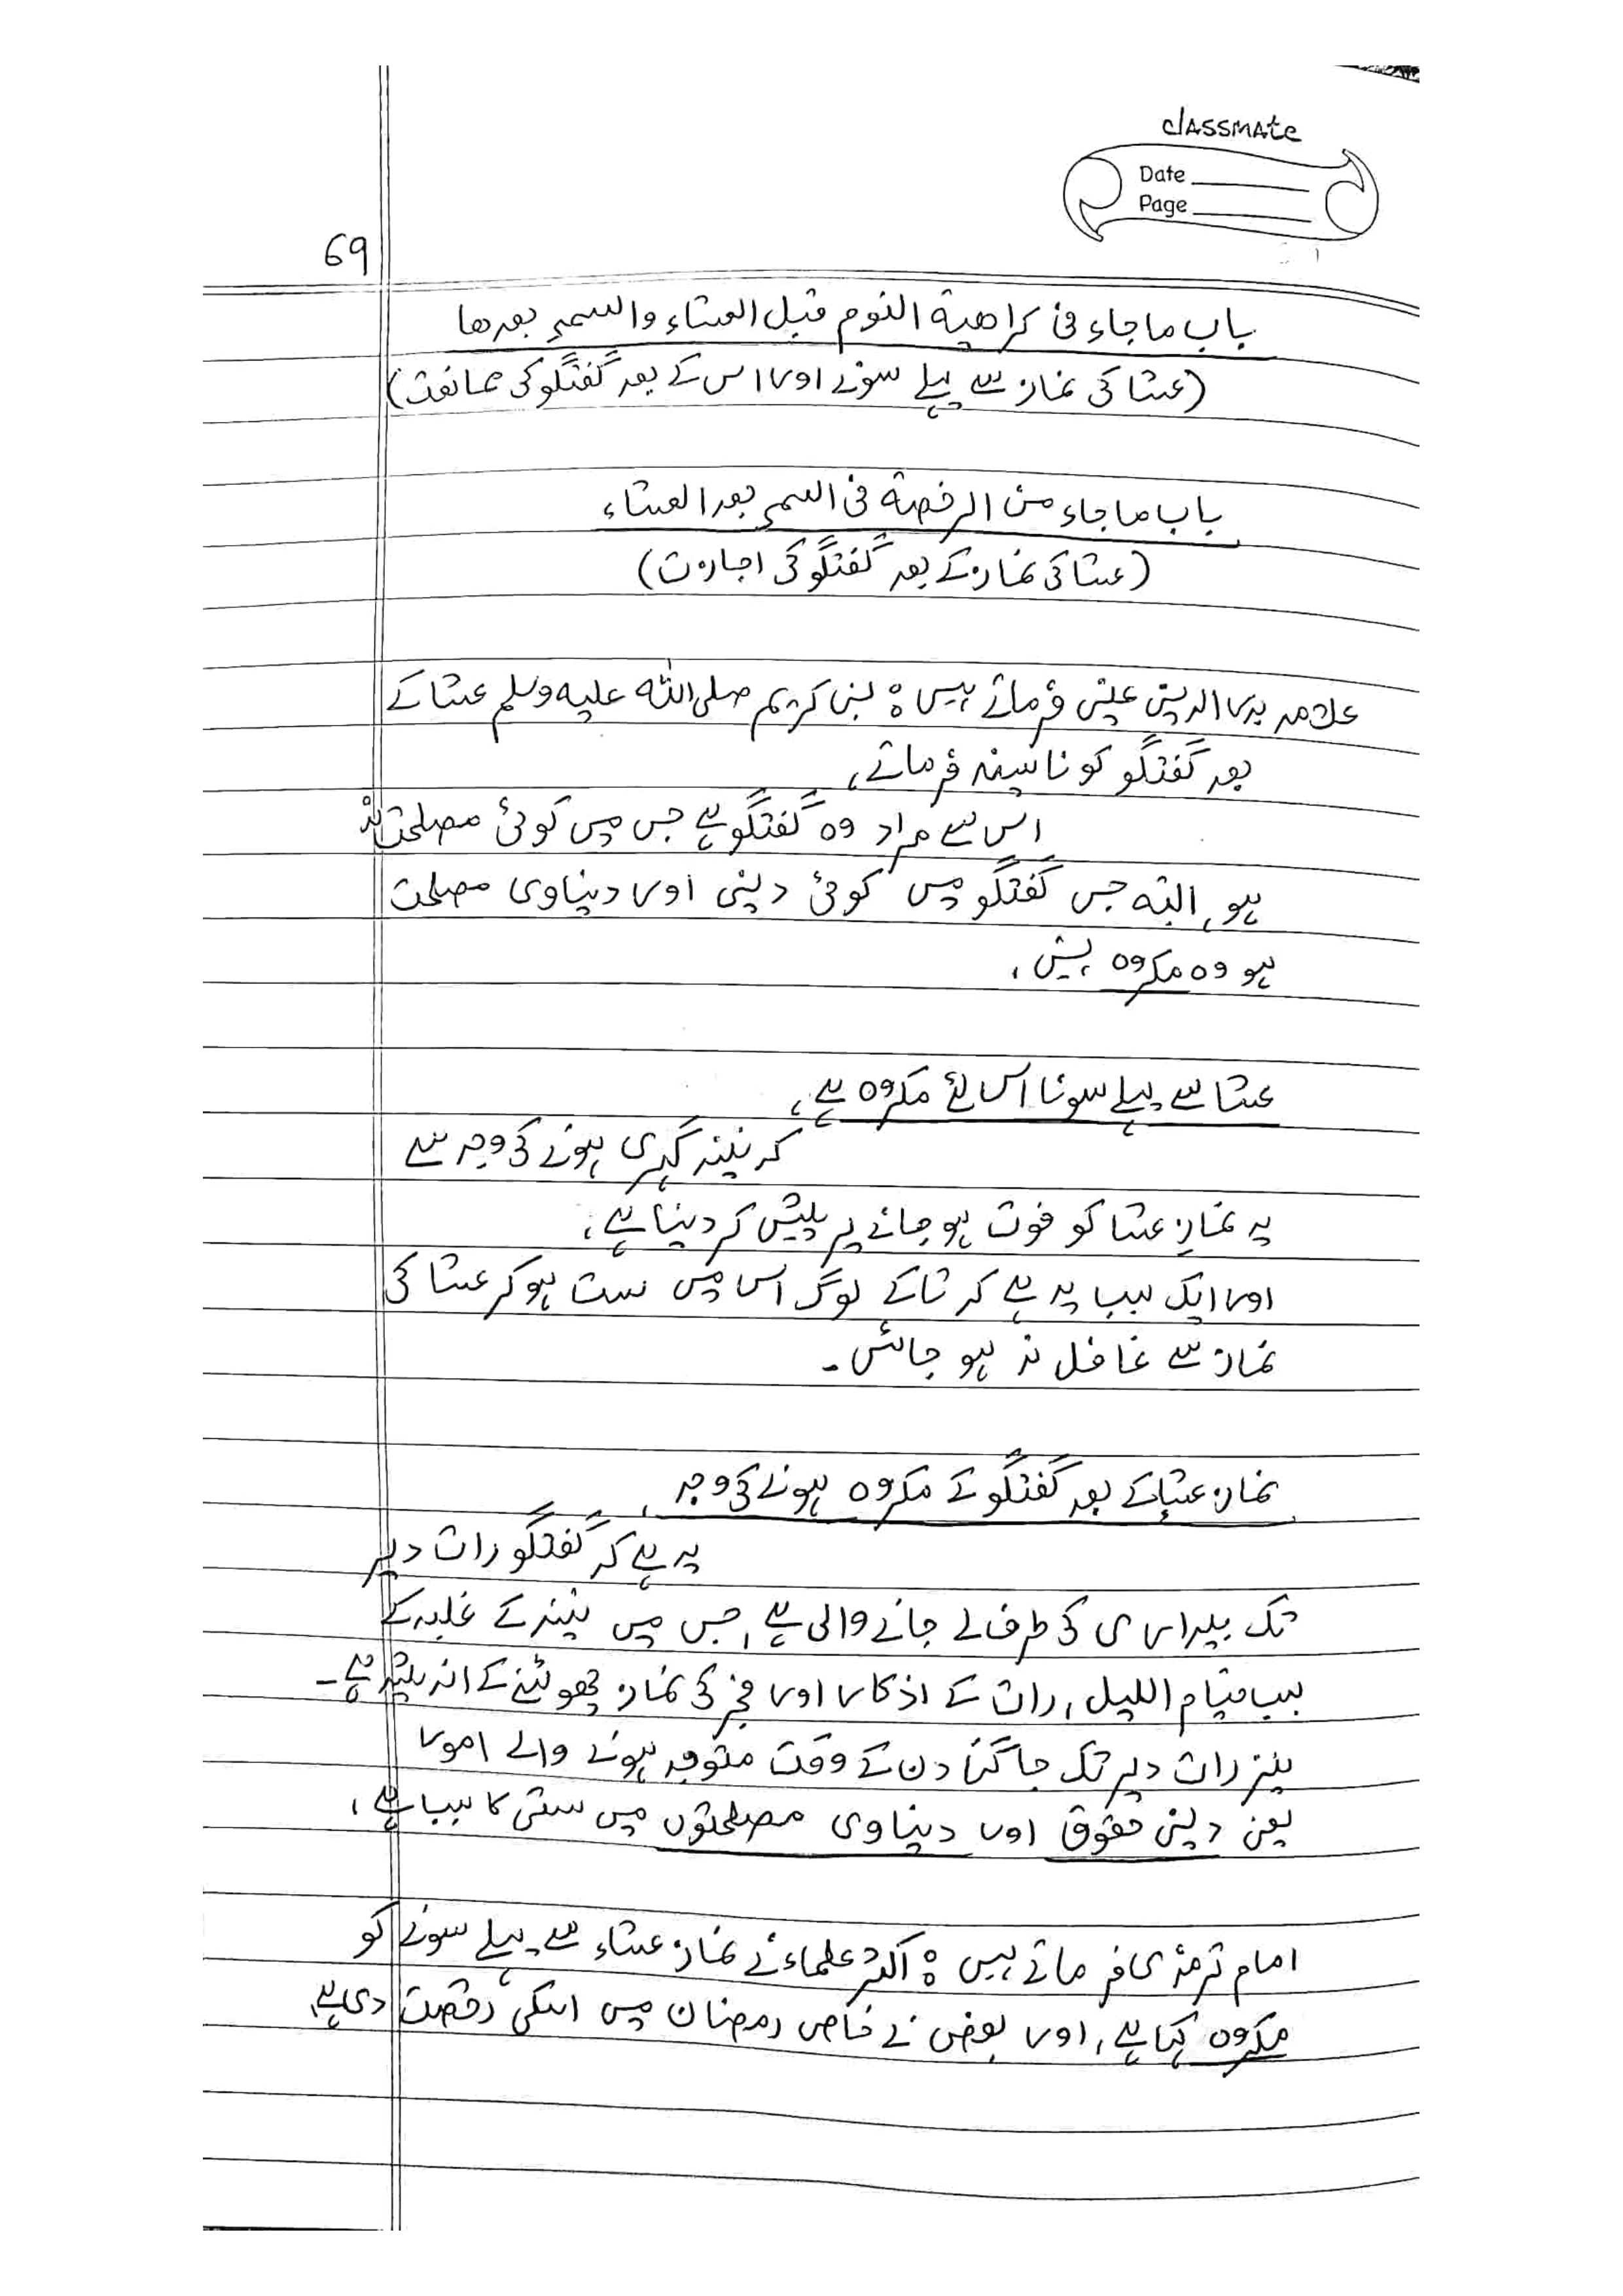 classmate
Date
Page
69
باب ما جاء فی کراهیة النوم قبل العشاء والسمر بعدها
(عشا کی نماز سے پہلے سونے اور اس کے بعد گفتگو کی ممانعت)
باب ما جاء من الرخصة فی السمر بعد العشاء
(عشا کی نماز کے بعد گفتگو کی اجازت)
علامہ بدر الدین عینی فرماتے ہیں : نبی کریم صلی اللہ علیہ وسلم عشا کے
بعد گفتگو کو ناپسند فرماتے،
اس سے مراد وہ گفتگو ہے جس میں کوئی مصلحت نہ
ہو، البتہ جس گفتگو میں کوئی دینی اور دنیاوی مصلحت
ہو وہ مکروہ نہیں،
عشا سے پہلے سونا اس لئے مکروہ ہے،
کہ نیند گہری ہونے کی وجہ سے
یہ نمازِ عشا کو فوت ہو جانے پر پیش کر دینا ہے،
اور ایک سبب یہ ہے کہ تاکے لوگ اس میں سست ہو کر عشا کی
نماز سے غافل نہ ہو جائیں۔
نماز عشا کے بعد گفتگو کے مکروہ ہونے کی وجہ،
یہ ہے کہ گفتگو رات دیر
تک بیداری کی طرف لے جانے والی ہے، جس میں نیند کے غلبہ کے
سبب قیام اللیل، رات کے اذکار اور فجر کی نماز چھوٹنے کے اندیشہ ہے۔
نیز رات دیر تک جاگنا دن کے وقت متوجہ ہونے والے امور
یعنی دینی حقوق اور دنیاوی مصلحتوں میں سستی کا سبب ہے،
امام ترمذی فرماتے ہیں : اکثر علماء نے نماز عشاء سے پہلے سونے کو
مکروہ کہا ہے، اور بعض نے خاص رمضان میں اسکی رخصت دی ہے،